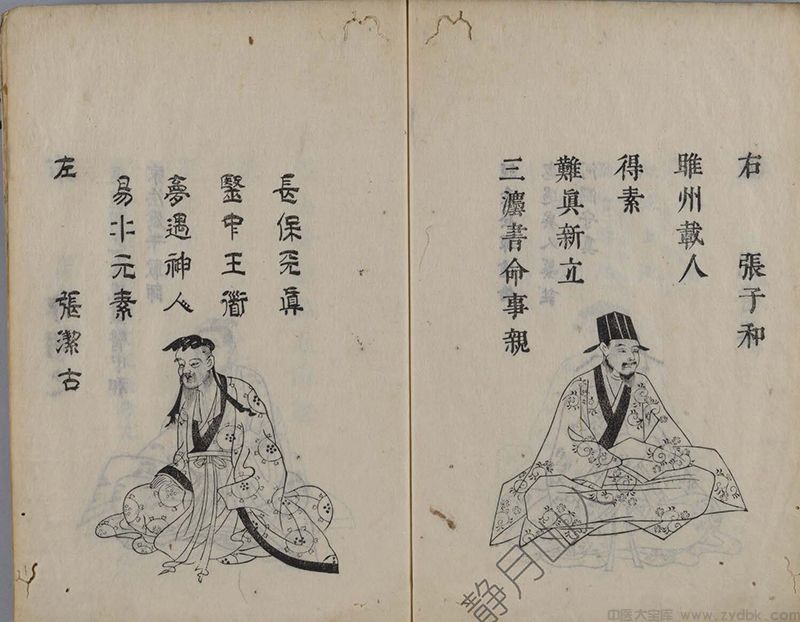 右 張子和
睢州載人
得素
難眞新立
三灋書命事親
長保天眞
毉中王衟
夢遇神人
易水元素
左 張潔古
静月
中医大宝库 www.zydbk.com